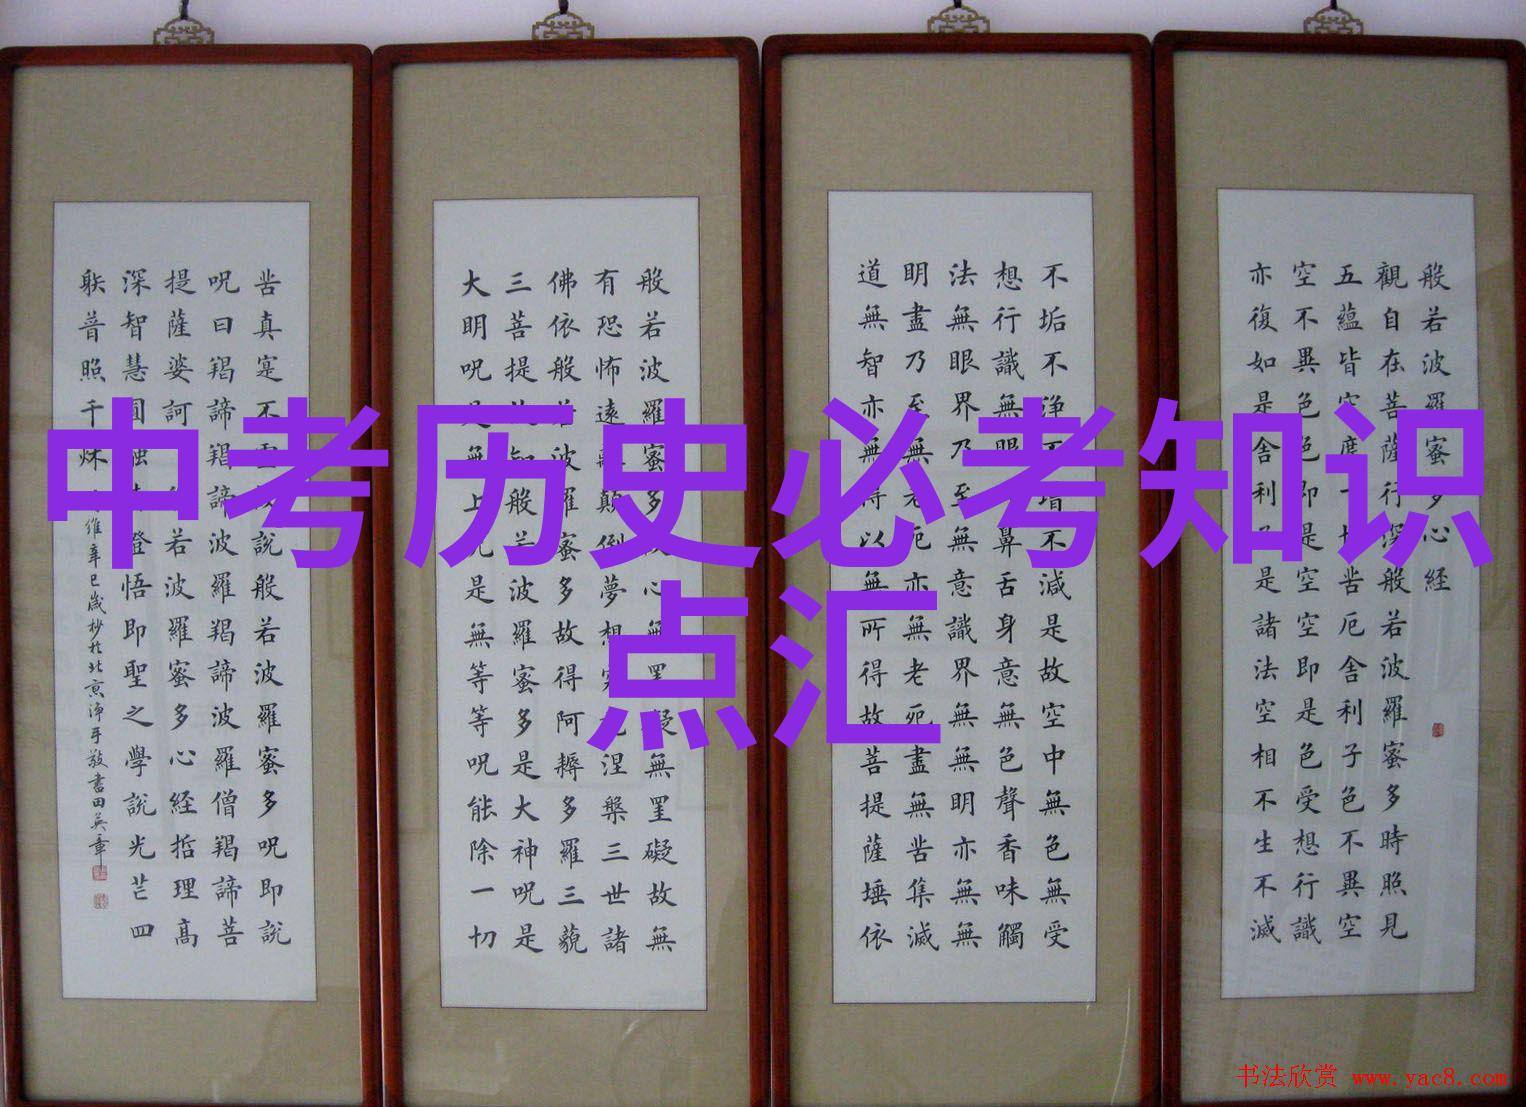 中考历史必考知识
点汇
般若波羅蜜多心経
觀自在菩薩行深般若波羅蜜多時照見
五蘊皆空度一切苦厄舍利子色不異空
空不異色色即是空空即是色受想行識
亦復如是舍利子是諸法空相不生不滅
不垢不淨不增不減是故空中無色無受
想行識無眼鼻舌身意無色聲香味觸
法無眼界乃至無意識界無無明亦無無
明盡乃至無老死亦無老死盡無苦集滅
道無智亦無得以無所得故菩提薩埵依
般若波羅蜜多故心無罣礙無罣礙故無
有恐怖遠離顛倒夢想究竟涅槃三世諸
佛依般若波羅蜜多故得阿耨多羅三藐
三菩提故知般若波羅蜜多是大神呪是
大明呪是無上呪是無等等呪能除一切
苦真寔不虛故說般若波羅蜜多呪即說
呪曰羯諦羯諦波羅羯諦波羅僧羯諦菩
提薩婆訶若波羅蜜多心経哲理高
深智慧圓融澄悟即聖之學說光芒四
躲普照千秋維辛巳歲杪於北京淨手敬書田英章
书法欣赏 www.yac8.com